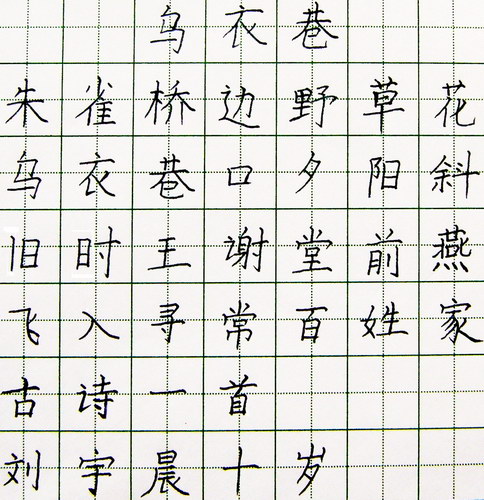 乌衣巷
朱雀桥边野草花
乌衣巷口夕阳斜
旧时王谢堂前燕
飞入寻常百姓家
古诗一首
刘宇晨十岁